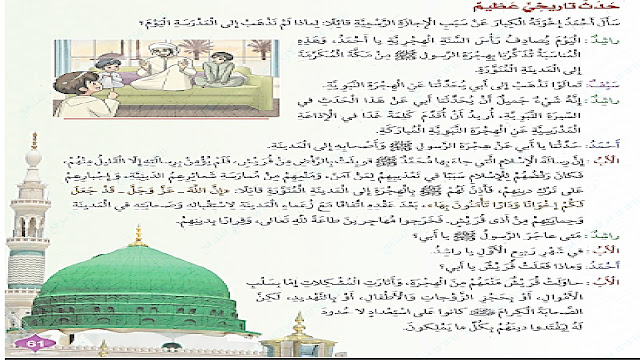 حَدَثٌ تَارِيخِيٌّ عَظِيمٌ
سَأَلَ أَحْمَدُ إِخْوَتَهُ الْكِبَارَ عَنْ سَبَبِ الْإِجَازَةِ الرَّسْمِيَّةِ قَائِلًا: لِمَاذَا لَمْ نَذْهَبْ إِلَى الْمَدْرَسَةِ الْيَوْمَ؟
راشِدٌ: الْيَوْمَ يُصَادِفُ رَأْسَ السَّنَةِ الْهِجْرِيَّةِ يَا أَحْمَدُ، وَهَذِهِ
الْمُنَاسَبَةُ تُذَكِّرُنَا بِهِجْرَةِ الرَّسُولِ ﷺ مِنْ مَكَّةَ الْمُكَرَّمَةِ
إِلَى الْمَدِينَةِ الْمُنَوَّرَةِ.
سَيْفٌ: تَعَالَوْا نَذْهَبْ إِلَى أَبِي يُحَدِّثْنَا عَنِ الْهِجْرَةِ النَّبَوِيَّةِ.
راشِدٌ: إِنَّهُ شَيْءٌ جَمِيلٌ أَنْ يُحَدِّثَنَا أَبِي عَنْ هَذَا الْحَدَثِ فِي
السِّيرَةِ النَّبَوِيَّةِ، أُرِيدُ أَنْ أُقَدِّمَ كَلِمَةً غَدًا فِي الْإِذَاعَةِ
الْمَدْرَسِيَّةِ عَنِ الْهِجْرَةِ النَّبَوِيَّةِ الْمُبَارَكَةِ.
أَحْمَدُ: حَدِّثْنَا يَا أَبِي عَنْ هِجْرَةِ الرَّسُولِ ﷺ وَأَصْحَابِهِ إِلَى الْمَدِينَةِ.
الْأَبُ: إِنَّ رِسَالَةَ الْإِسْلَامِ الَّتِي جَاءَ بِهَا مُحَمَّدٌ ﷺ قُوبِلَتْ بِالرَّفْضِ مِنْ قُرَيْشٍ، فَلَمْ يُؤْمِنْ بِرِسَالَتِهِ إِلَّا الْقَلِيلُ مِنْهُمْ،
فَكَانَ رَفْضُهُمْ لِلْإِسْلَامِ سَبَبًا فِي تَعْذِيبِهِمْ لِمَنْ آمَنَ، وَمَنْعِهِمْ مِنْ مُمَارَسَةِ شَعَائِرِهِمُ الدِّينِيَّةِ، وَإِجْبَارِهِمْ
عَلَى تَرْكِ دِينِهِمْ، فَأَذِنَ لَهُمْ ﷺ بِالْهِجْرَةِ إِلَى الْمَدِينَةِ الْمُنَوَّرَةِ قَائِلًا: «إِنَّ اللهَ - عَزَّ وَجَلَّ - قَدْ جَعَلَ
لَكُمْ إِخْوَانًا وَدَارًا تَأْمَنُونَ بِهَا»، بَعْدَ عَقْدِهِ اتِّفَاقًا مَعَ زُعَمَاءِ الْمَدِينَةِ لِاسْتِقْبَالِهِ وَصَحَابَتِهِ فِي الْمَدِينَةِ
وَحِمَايَتِهِمْ مِنْ أَذَى قُرَيْشٍ. فَخَرَجُوا مُهَاجِرِينَ طَاعَةً لِلهِ تَعَالَى، وَفِرَارًا بِدِينِهِمْ.
راشِدٌ: مَتَى هَاجَرَ الرَّسُولُ ﷺ يَا أَبِي؟
الْأَبُ: فِي شَهْرِ رَبِيعٍ الْأَوَّلِ يَا رَاشِدُ.
أَحْمَدُ: وَمَاذَا فَعَلَتْ قُرَيْشٌ يَا أَبِي؟
الْأَبُ: حَاوَلَتْ قُرَيْشٌ مَنْعَهُمْ مِنَ الْهِجْرَةِ، وَأَثَارَتِ الْمُشْكِلَاتِ إِمَّا بِسَلْبِ
الْأَمْوَالِ، أَوْ بِحَجْزِ الزَّوْجَاتِ وَالْأَطْفَالِ، أَوْ بِالتَّهْدِيدِ، لَكِنَّ
الصَّحَابَةَ الْكِرَامَ ﷺ كَانُوا عَلَى اسْتِعْدَادٍ لَا حُدُودَ
لَهُ لِيَفْتَدُوا دِينَهُمْ بِكُلِّ مَا يَمْلِكُونَ.
61